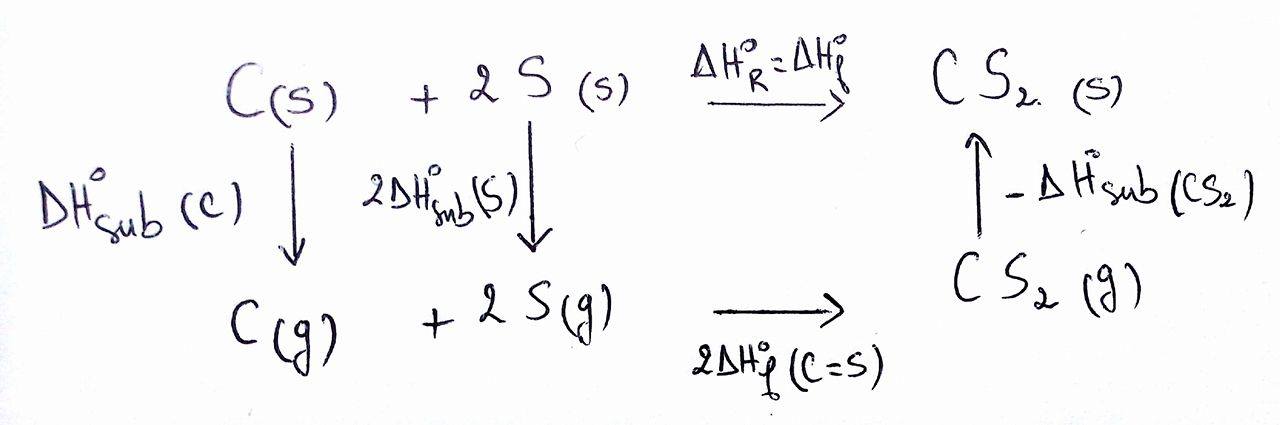 C(s) + 2 S (s) ΔH°R = ΔH°f CS2. (s)
ΔH°sub (C) 2ΔH°sub(S) - ΔH°sub (CS2)
CS2 (g)
C(g) + 2 S(g)
2ΔH°f (C=S)